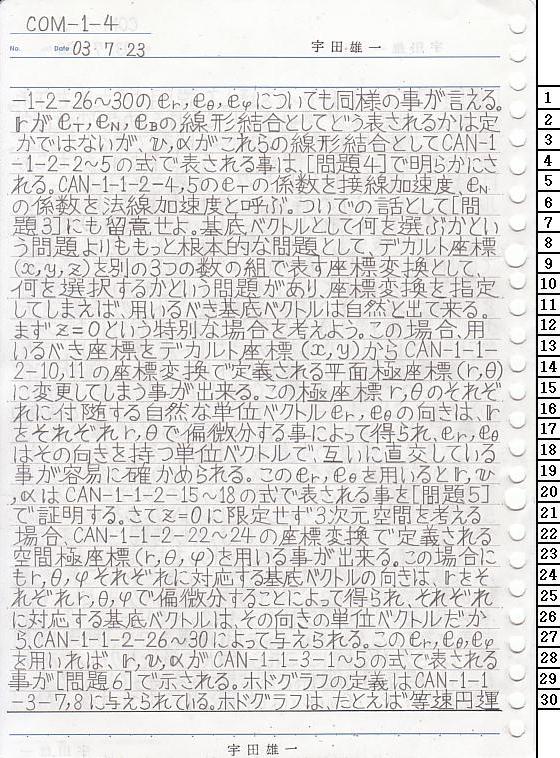 COM-1-4
No. Date 03・7・23 宇田雄一
-1-2-26～30のer,eθ,eφについても同様の事が言える。 1
rがeT,eN,eBの線形結合としてどう表されるかは定 2
かではないが、v,αがこれらの線形結合としてCAN-1 3
-1-2-2～5の式で表される事は、[問題4]で明らかにさ 4
れる。CAN-1-1-2-4,5のeTの係数を接線加速度、eN 5
の係数を法線加速度と呼ぶ。ついでの話として[問 6
題3]にも留意せよ。基底ベクトルとして何を選ぶかとい 7
う問題よりももっと根本的な問題として、デカルト座標 8
(x,y,z)を別の3つの数の組で表す座標変換として、 9
何を選択するかという問題があり、座標変換を指定 10
してしまえば、用いるべき基底ベクトルは自然と出て来る。 11
まずz=0という特別な場合を考えよう。この場合、用 12
いるべき座標をデカルト座標(x,y)からCAN-1-1- 13
2-10,11の座標変換で定義される平面極座標(r,θ) 14
に変更してしまう事が出来る。この極座標r,θのそれぞ 15
れに付随する自然な単位ベクトルer,eθの向きは、r 16
をそれぞれr,θで偏微分する事によって得られ、er,eθ 17
はその向きを持つ単位ベクトルで、互いに直交している 18
事が容易に確かめられる。このer,eθを用いるとr,v 19
,αはCAN-1-1-2-15～18の式で表される事を[問題5] 20
で証明する。さてz=0に限定せず3次元空間を考える 21
場合、CAN-1-1-2-22～24の座標変換で定義される 22
空間極座標(r,θ,φ)を用いる事が出来る。この場合に 23
もr,θ,φそれぞれに対応する基底ベクトルの向きは、rをそ 24
れぞれr,θ,φで偏微分することによって得られ、それぞれ 25
に対応する基底ベクトルは、その向きの単位ベクトルだか 26
ら、CAN-1-1-2-26～30によって与えられる。このer,eθ,eφ 27
を用いれば、r,v,αがCAN-1-1-3-1～5の式で表される 28
事が[問題6]で示される。ホドグラフの定義はCAN-1-1 29
-3-7,8に与えられている。ホドグラフは、たとえば"等速円運 30
宇田雄一